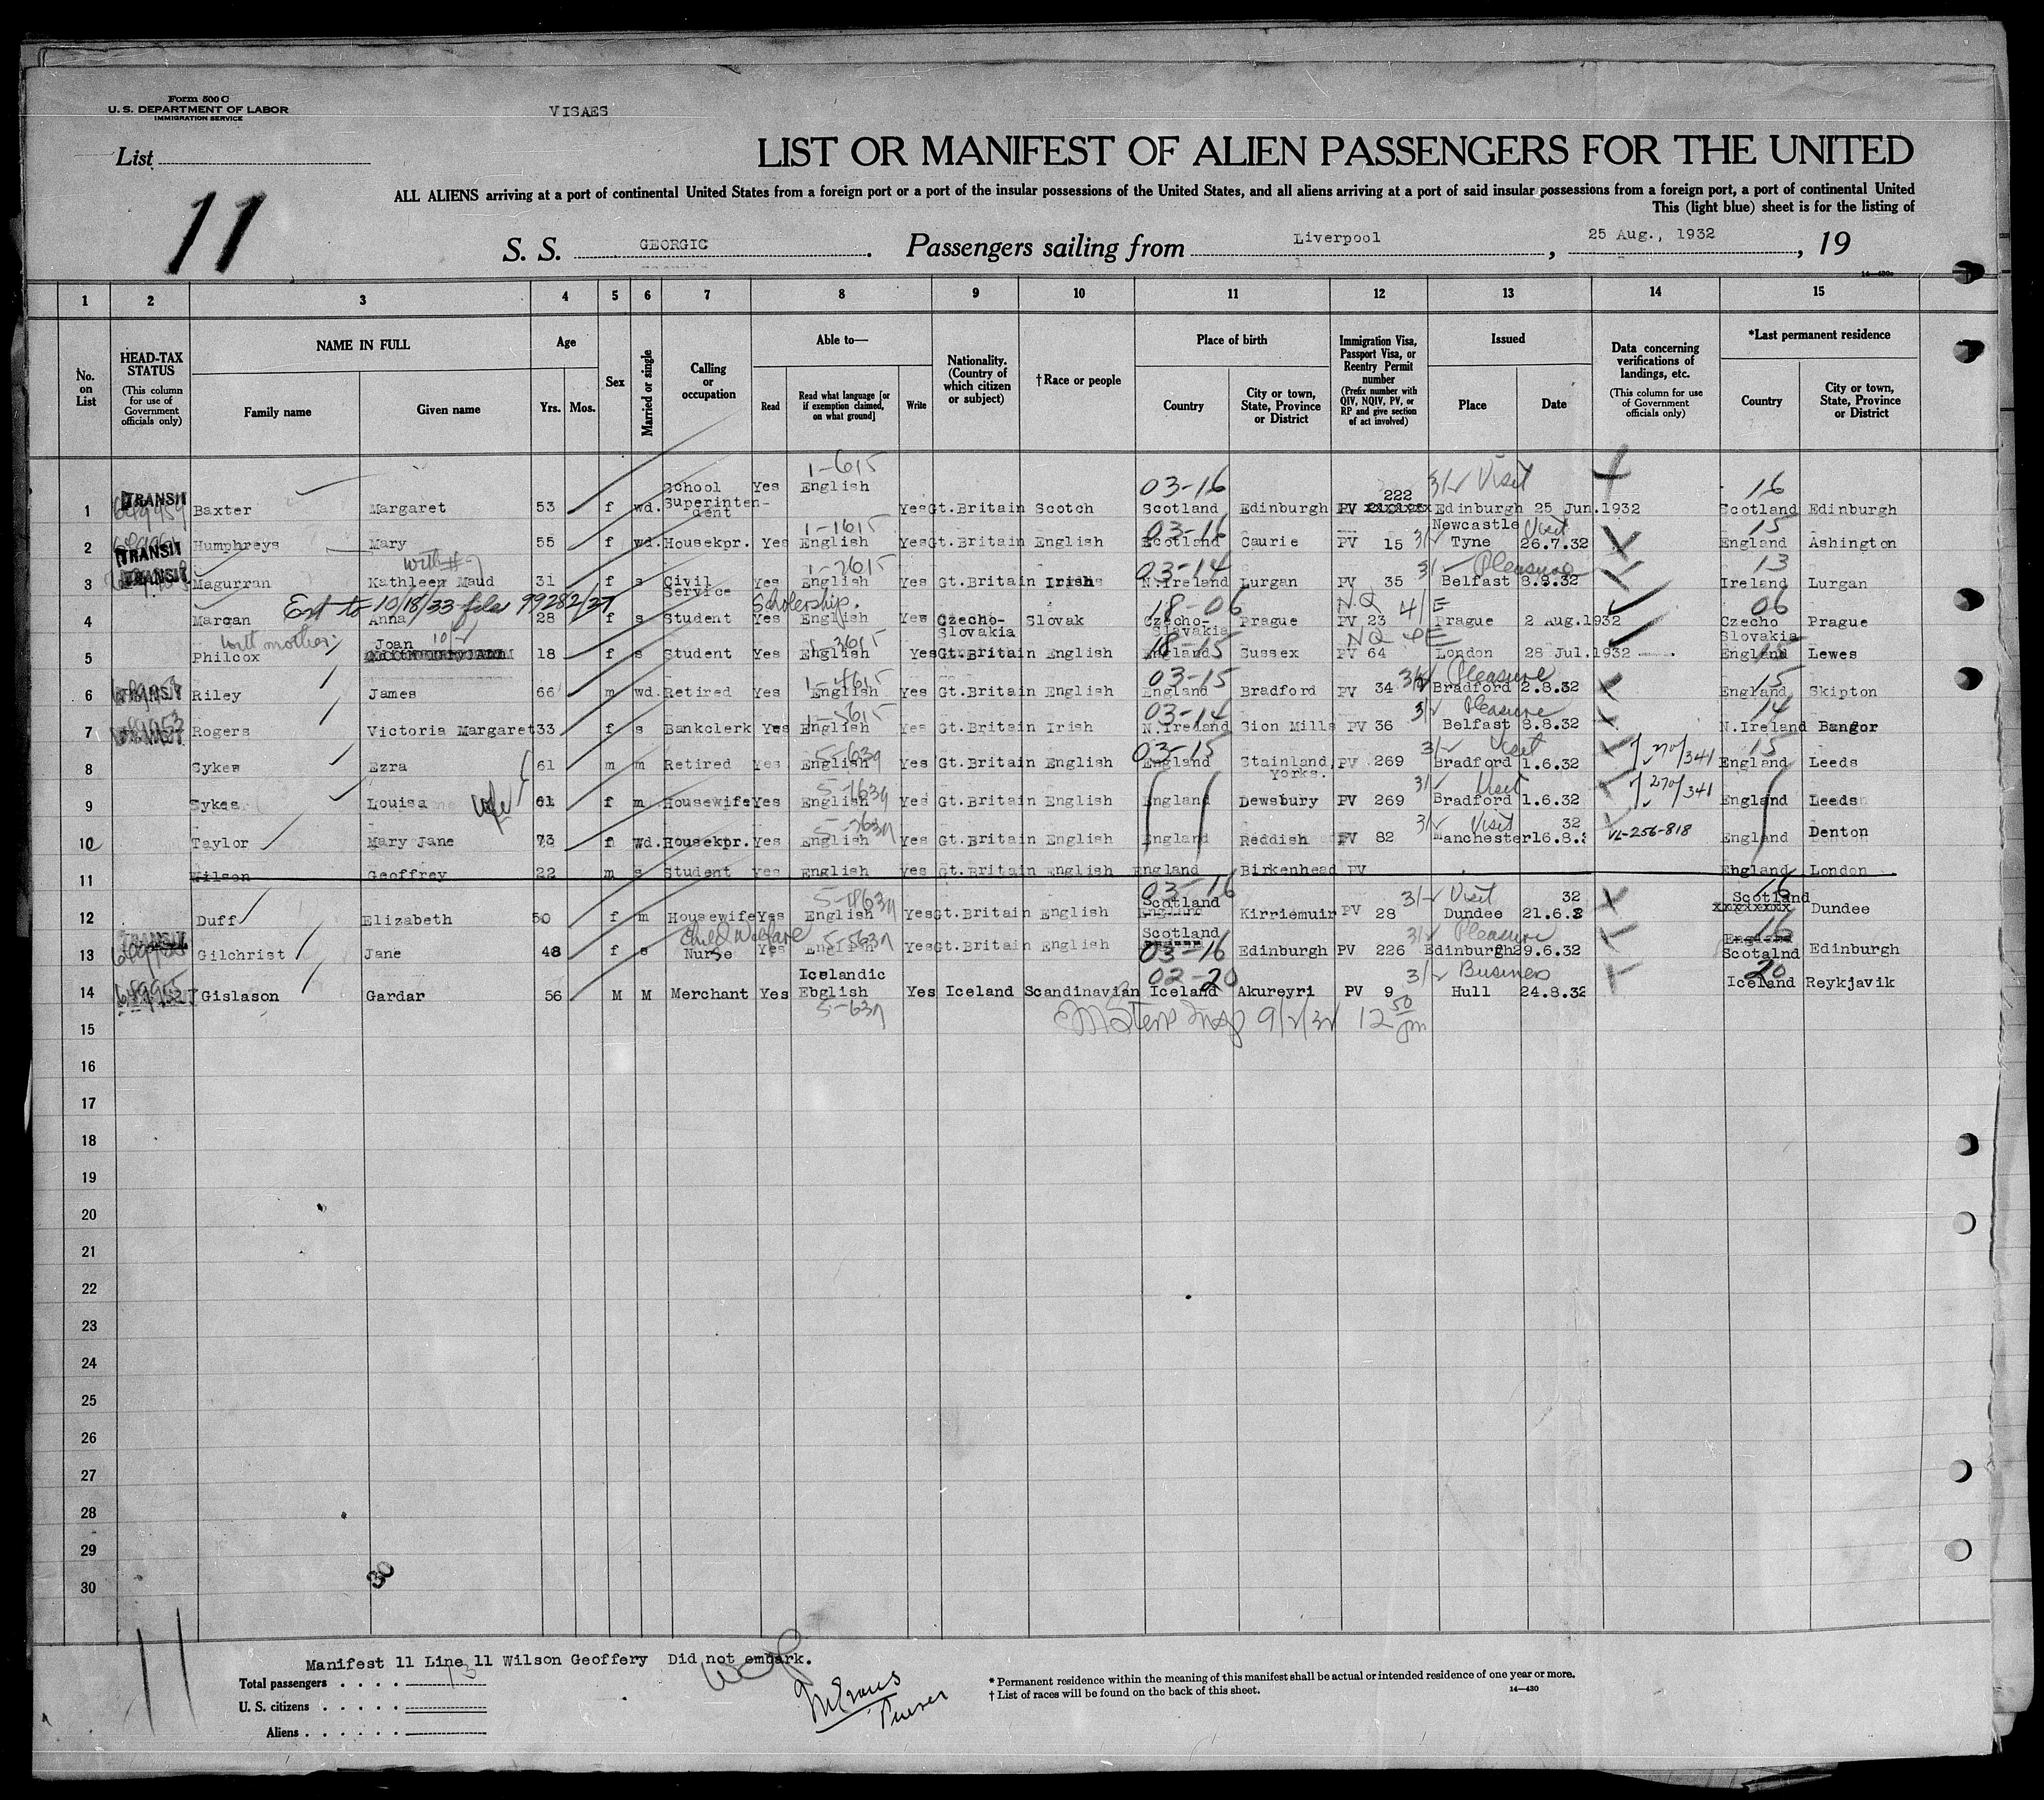 Form 500 C
U. S. DEPARTMENT OF LABOR
IMMIGRATION SERVICE
VISAES
List
11
LIST OR MANIFEST OF ALIEN PASSENGERS FOR THE UNITED
ALL ALIENS arriving at a port of continental United States from a foreign port or a port of the insular possessions of the United States, and all aliens arriving at a port of said insular possessions from a foreign port, a port of continental United
This (light blue) sheet is for the listing of
S. S. GEORGIC. Passengers sailing from Liverpool, 25 Aug., 1932, 19
14—430a
1 2 3 4 5 6 7 8 9 10 11 12 13 14 15
No. on List
HEAD-TAX STATUS (This column for use of Government officials only)
NAME IN FULL Family name Given name
Age Yrs. Mos.
Sex
Married or single
Calling or occupation
Able to— Read Read what language [or if exemption claimed, on what ground] Write
Nationality. (Country of which citizen or subject)
†Race or people
Place of birth Country City or town, State, Province or District
Immigration Visa, Passport Visa, or Reentry Permit number (Prefix number with QIV, NQIV, PV, or RP and give section of act involved)
Issued Place Date
Data concerning verifications of landings, etc. (This column for use of Government officials only)
*Last permanent residence Country City or town, State, Province or District
1-615 03-16 222 3/2 Visit 16
1 TRANSIT 649959 Baxter Margaret 53 f wd. School Superintendent Yes English Yes Gt.Britain Scotch Scotland Edinburgh PV Edinburgh 25 Jun.1932 Scotland Edinburgh
1-1615 03-16 3/2 Visit 15
2 TRANSIT Humphreys Mary 55 f wd. Housekpr. Yes English Yes Gt.Britain English Scotland Caurie PV 15 Newcastle Tyne 26.7.32 England Ashington
with #7 1-2615 03-14 3/2 Pleasure 13
3 TRANSIT Magurran Kathleen Maud 31 f s Civil Service Yes English Yes Gt.Britain Irish N.Ireland Lurgan PV 35 Belfast 8.8.32 Ireland Lurgan
Ext to 10/18/33 file 99282/37 Scholership. 18-06 NQ 4/E 06
4 Marcan Anna 28 f s Student Yes English Yes Czecho-Slovakia Slovak Czecho-Slovakia Prague PV 23 Prague 2 Aug.1932 Czecho Slovakia Prague
with mother 10/2 1-3615 18-15 NQ 4E 15
5 Philcox Joan 18 f s Student Yes English Yes Gt.Britain English England Sussex PV 64 London 28 Jul.1932 England Lewes
1-4615 03-15 3/2 Pleasure 15
6 TRANSIT Riley James 66 m wd. Retired Yes English Yes Gt.Britain English England Bradford PV 34 Bradford 2.8.32 England Skipton
1-5615 03-14 3/2 Pleasure 14
7 TRANSIT Rogers Victoria Margaret 33 f s Bankclerk Yes English Yes Gt.Britain Irish N.Ireland Sion Mills PV 36 Belfast 8.8.32 N.Ireland Bangor
5-637 03-15 3/2 Visit 270/341 15
8 Sykes Ezra 61 m m Retired Yes English Yes Gt.Britain English England Stainland, Yorks. PV 269 Bradford 1.6.32 England Leeds
5-1637 3/2 Visit 270/341
9 Sykes Louisa wife 61 f m Housewife Yes English Yes Gt.Britain English England Dewsbury PV 269 Bradford 1.6.32 England Leeds
5-2637 3/2 Visit 32 VL-256-818
10 Taylor Mary Jane 73 f wd. Housekpr. Yes English Yes Gt.Britain English England Reddish PV 82 Manchester 16.8. England Denton
11 Wilson Geoffrey 22 m s Student Yes English Yes Gt.Britain English England Birkenhead PV England London
5-4637 03-16 3/2 Visit 32 16
12 Duff Elizabeth 50 f m Housewife Yes English Yes Gt.Britain English Scotland England Kirriemuir PV 28 Dundee 21.6.3 Scotland Dundee
Child Welfare 5-5637 3/2 Pleasure 16
13 TRANSIT Gilchrist Jane 48 f s Nurse Yes English Yes Gt.Britain English Scotland 03-16 Edinburgh PV 226 Edinburgh 29.6.32 England Scotalnd Edinburgh
02-20 3/2 Business 20
14 649955 Gislason Gardar 56 M M Merchant Yes Icelandic Ebglish Yes Iceland Scandinavian Iceland Akureyri PV 9 Hull 24.8.32 Iceland Reykjavik
5-637 Insp 9/2/32 12 50 pm
15
16
17
18
19
20
21
22
23
24
25
26
27
28
29
30
30
11
Manifest 11 Line 11 Wilson Geoffery Did not embark.
Total passengers . . . . 13
U. S. citizens . . . . .
Aliens . . . . . .
Purser
* Permanent residence within the meaning of this manifest shall be actual or intended residence of one year or more.
† List of races will be found on the back of this sheet.
14—430